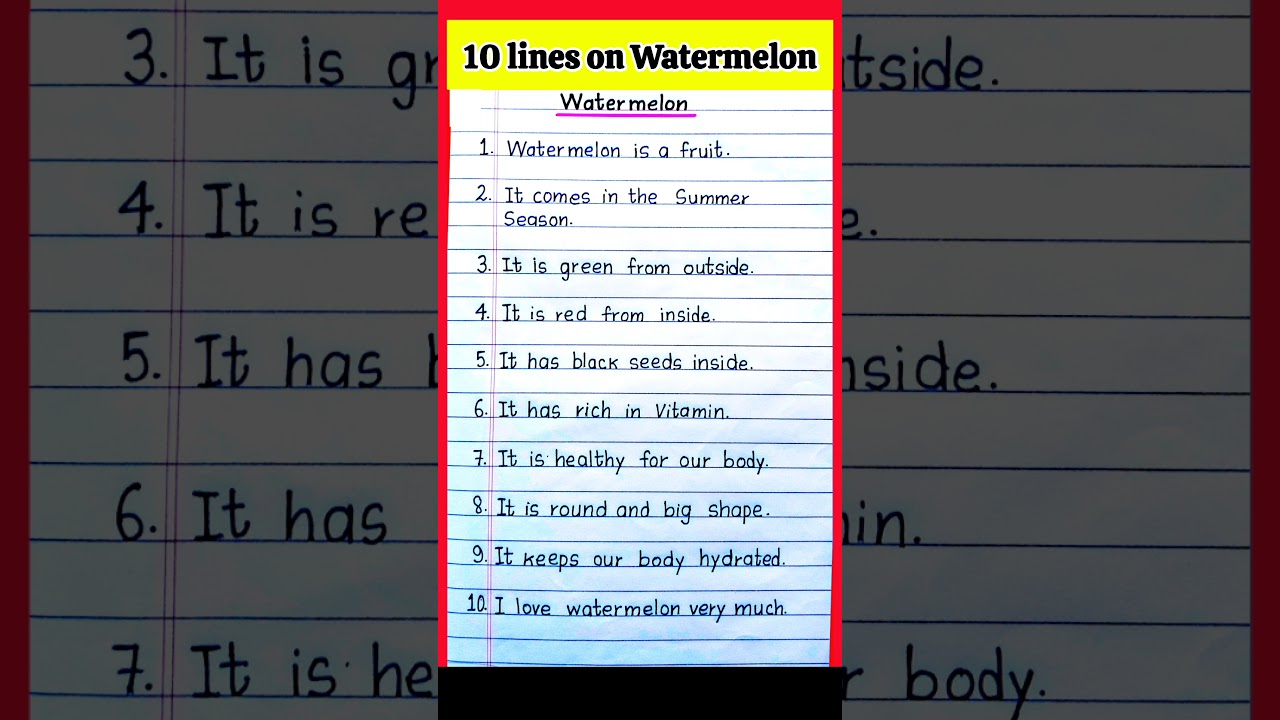 3. It is gr
4. It is re
5. It has
6. It has
7. It is he
10 lines on Watermelon
Watermelon
1. Watermelon is a fruit.
2. It comes in the Summer
Season.
3. It is green from outside.
4. It is red from inside.
5. It has black seeds inside.
6. It has rich in Vitamin.
7. It is healthy for our body.
8. It is round and big shape.
9. It keeps our body hydrated.
10. I love watermelon very much.
tside.
e.
nside.
in.
r body.